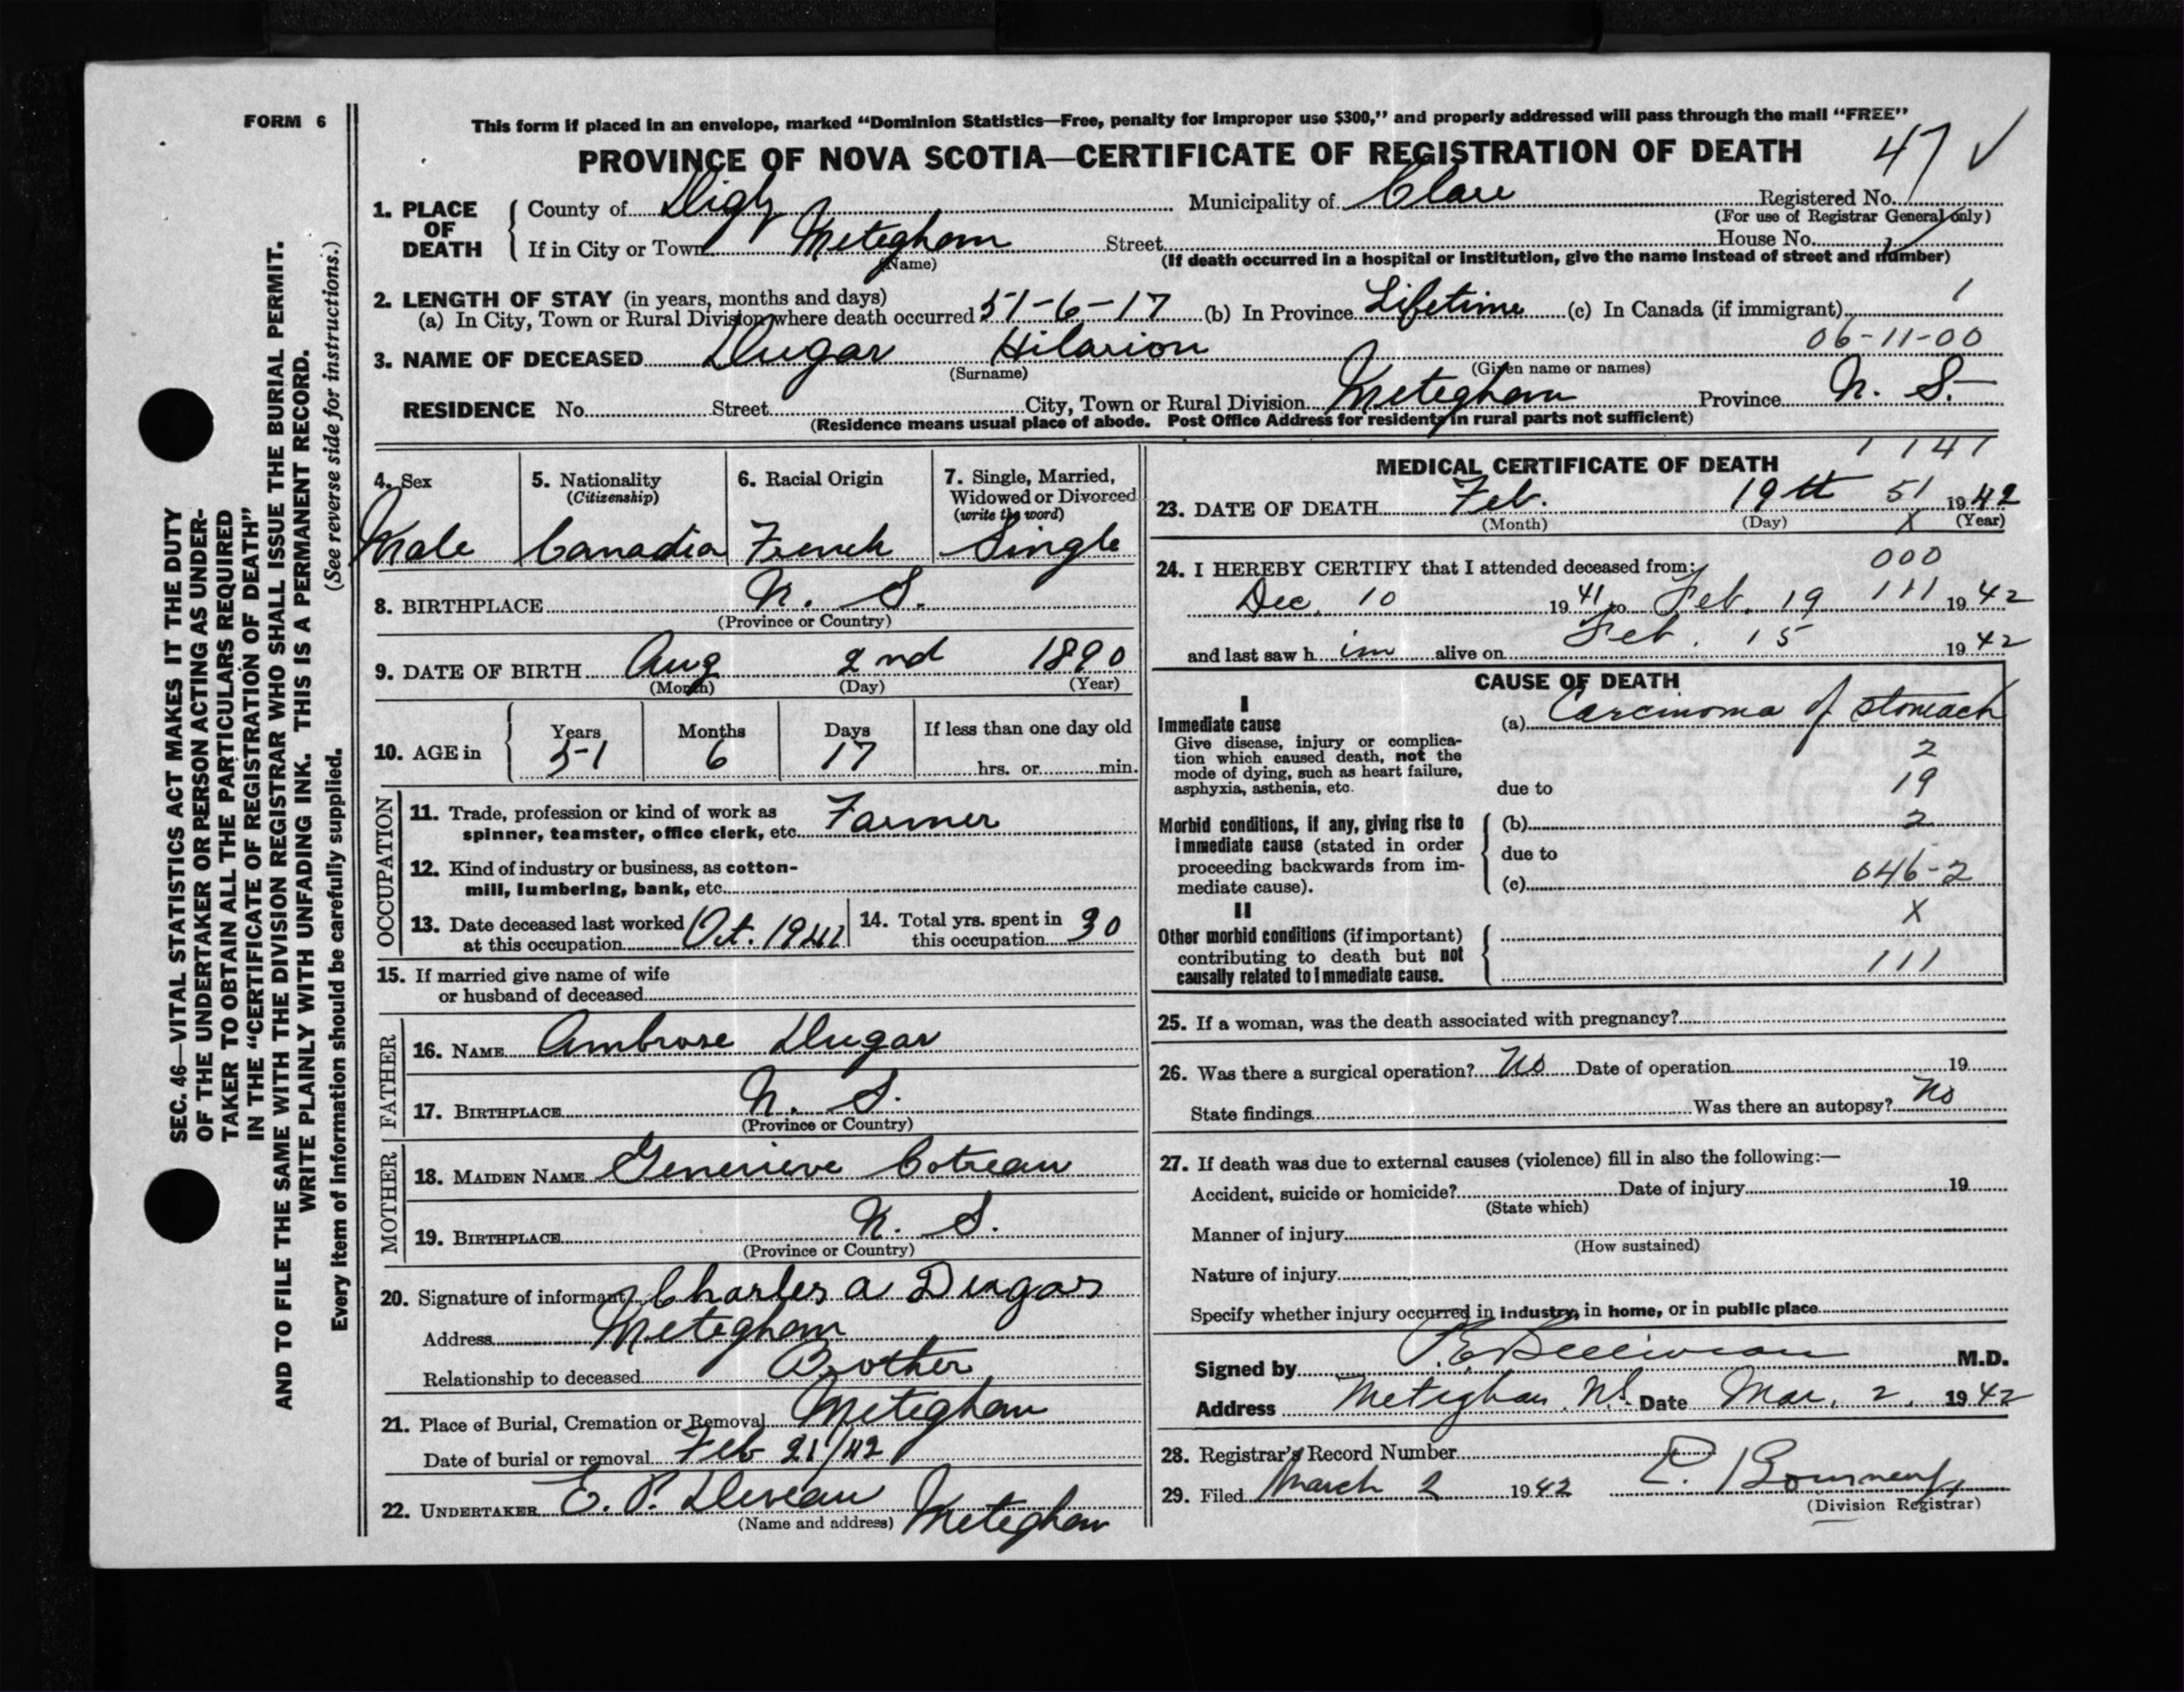 FORM 6
SEC. 46—VITAL STATISTICS ACT MAKES IT THE DUTY
OF THE UNDERTAKER OR PERSON ACTING AS UNDER-
TAKER TO OBTAIN ALL THE PARTICULARS REQUIRED
IN THE "CERTIFICATE OF REGISTRATION OF DEATH"
AND TO FILE THE SAME WITH THE DIVISION REGISTRAR WHO SHALL ISSUE THE BURIAL PERMIT.
WRITE PLAINLY WITH UNFADING INK. THIS IS A PERMANENT RECORD.
Every item of information should be carefully supplied. (See reverse side for instructions.)
This form if placed in an envelope, marked "Dominion Statistics—Free, penalty for improper use $300," and properly addressed will pass through the mail "FREE"
PROVINCE OF NOVA SCOTIA—CERTIFICATE OF REGISTRATION OF DEATH 47 ✓
1. PLACE OF DEATH
County of Digby Municipality of Clare Registered No.
(For use of Registrar General only)
If in City or Town Meteghan Street House No.
(Name) (If death occurred in a hospital or institution, give the name instead of street and number)
2. LENGTH OF STAY (in years, months and days) 1
(a) In City, Town or Rural Division where death occurred 51-6-17 (b) In Province Lifetime (c) In Canada (if immigrant)
06-11-00
3. NAME OF DECEASED Dugas Hilarion
(Surname) (Given name or names)
RESIDENCE No. Street City, Town or Rural Division Meteghan Province N. S.
(Residence means usual place of abode. Post Office Address for residents in rural parts not sufficient)
4. Sex 5. Nationality (Citizenship) 6. Racial Origin 7. Single, Married, Widowed or Divorced (write the word)
Male Canadia French Single
8. BIRTHPLACE N. S.
(Province or Country)
9. DATE OF BIRTH Aug 2nd 1890
(Month) (Day) (Year)
10. AGE in Years Months Days If less than one day old
51 6 17 hrs. or min.
OCCUPATION
11. Trade, profession or kind of work as
spinner, teamster, office clerk, etc. Farmer
12. Kind of industry or business, as cotton-
mill, lumbering, bank, etc.
13. Date deceased last worked
at this occupation Oct. 1941
14. Total yrs. spent in
this occupation 30
15. If married give name of wife
or husband of deceased
FATHER
16. NAME Ambrose Dugas
17. BIRTHPLACE N. S.
(Province or Country)
MOTHER
18. MAIDEN NAME Genevieve Cotreau
19. BIRTHPLACE N. S.
(Province or Country)
20. Signature of informant Charles A Dugas
Address Meteghan
Relationship to deceased Brother
21. Place of Burial, Cremation or Removal Meteghan
Date of burial or removal Feb 21/42
22. UNDERTAKER E. P. Deveau Meteghan
(Name and address)
1 141
MEDICAL CERTIFICATE OF DEATH
23. DATE OF DEATH Feb. 19th 51 1942
(Month) (Day) X (Year)
24. I HEREBY CERTIFY that I attended deceased from: 000
Dec. 10 1941 to Feb. 19 111 1942
and last saw h im alive on Feb. 15 1942
CAUSE OF DEATH
I
Immediate cause (a) Carcinoma of stomach
Give disease, injury or complica-
tion which caused death, not the
mode of dying, such as heart failure,
asphyxia, asthenia, etc.
2
due to 19
Morbid conditions, if any, giving rise to
immediate cause (stated in order
proceeding backwards from im-
mediate cause).
(b) 2
due to
(c) 046-2
II X
Other morbid conditions (if important)
contributing to death but not
causally related to immediate cause. 111
25. If a woman, was the death associated with pregnancy?
26. Was there a surgical operation? No Date of operation 19
State findings Was there an autopsy? No
27. If death was due to external causes (violence) fill in also the following:—
Accident, suicide or homicide? Date of injury 19
(State which)
Manner of injury
(How sustained)
Nature of injury
Specify whether injury occurred in industry, in home, or in public place
Signed by P. E. Belliveau M.D.
Address Meteghan, N.S. Date Mar. 2, 1942
28. Registrar's Record Number
29. Filed March 2 1942 Bourneuf
(Division Registrar)